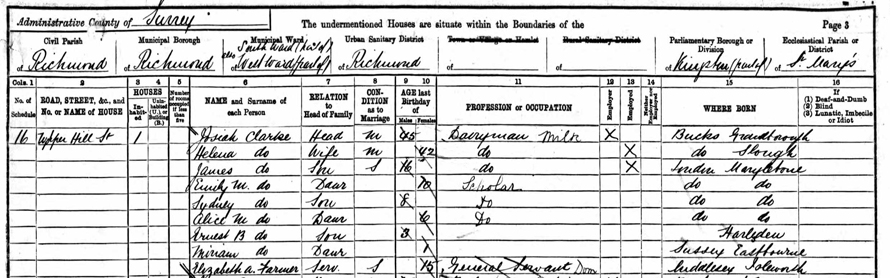 Administrative County of Surrey
The undermentioned Houses are situate within the Boundaries of the
Page 3
Civil Parish
of Richmond
Municipal Borough
of Richmond
Municipal Ward
South Ward (part of)
also West Ward (part of)
of
Urban Sanitary District
of Richmond
Town or Village or Hamlet
of
Rural Sanitary District
of
Parliamentary Borough or Division
of Kingston (part of)
Ecclesiastical Parish or District
of St. Mary's
Cols. 1 2 3 4 5 6 7 8 9 10 11 12 13 14 15 16
No. of Schedule
ROAD, STREET, &c., and No. or NAME of HOUSE
HOUSES
In-habit-ed
Unin-habited (U.), or Building (B.)
Number of rooms occupied if less than five
NAME and Surname of each Person
RELATION to Head of Family
CON-DITION as to Marriage
AGE last Birthday of
Males
Females
PROFESSION or OCCUPATION
Employer
Employed
Neither
WHERE BORN
If
(1) Deaf-and-Dumb
(2) Blind
(3) Lunatic, Imbecile or Idiot
16 Upper Hill St 1 Josiah Clarke Head M 45 Dairyman Milk X Bucks Grandborough
Helena do Wife M 42 do X do Slough
James do Son S 16 do X London Marylebone
Emily M. do Daur 10 Scholar do do
Sydney do Son 8 do do do
Alice M do Daur 6 do do do
Ernest B do Son 3 Harlyden
Miriam do Daur 1 Sussex Eastbourne
Elizabeth A. Farmer Serv. S 15 General Servant Dom Middlesex Isleworth